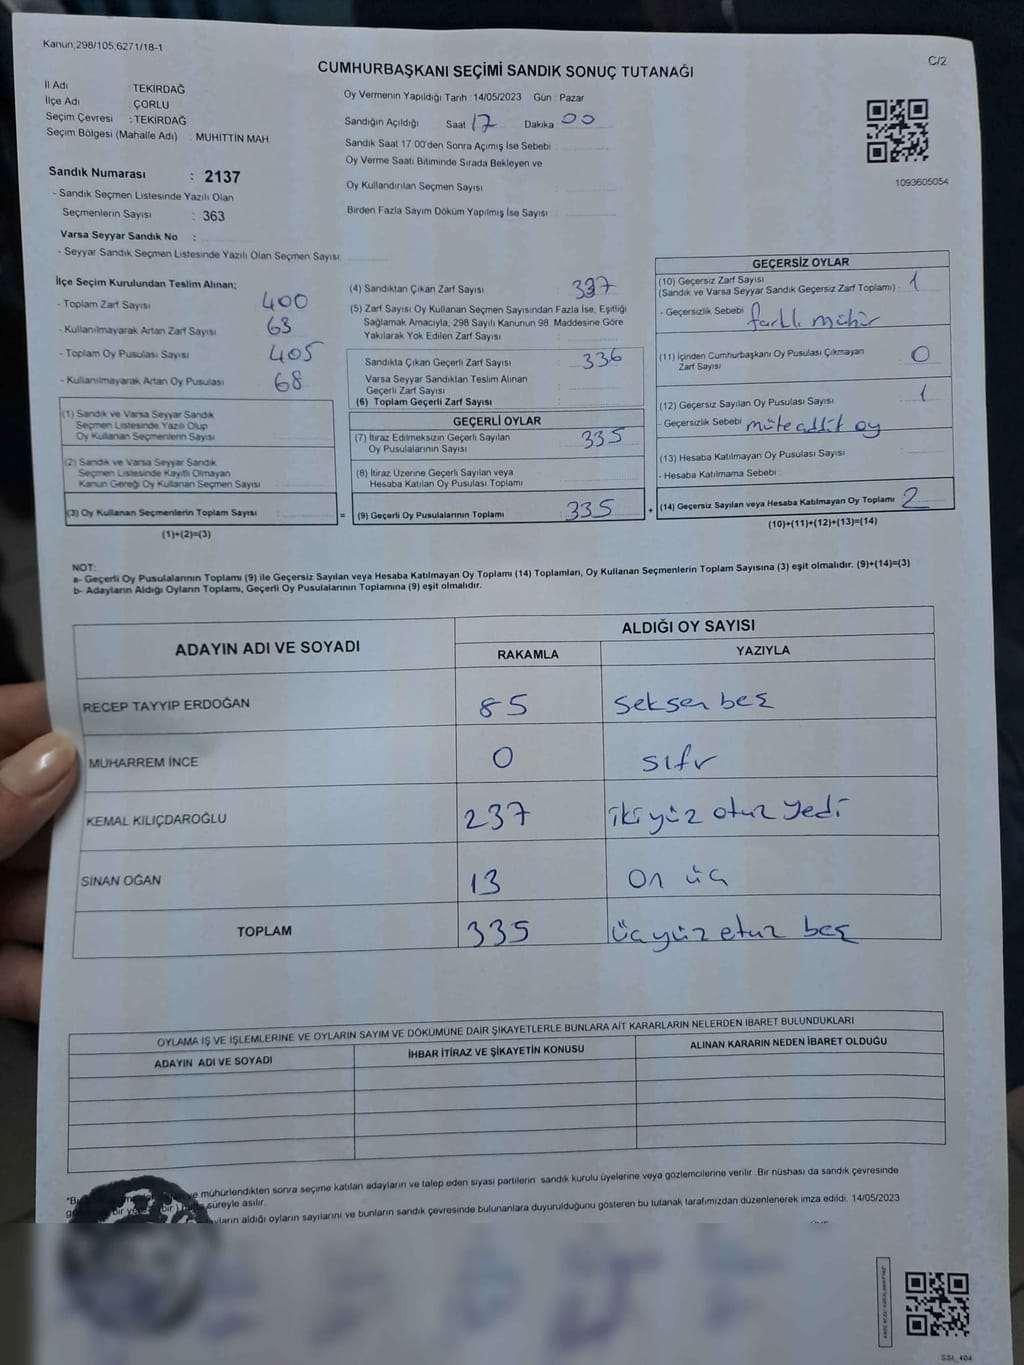 Kanun;298/105,6271/18-1
C/2
CUMHURBAŞKANI SEÇİMİ SANDIK SONUÇ TUTANAĞI
İl Adı : TEKİRDAĞ
İlçe Adı : ÇORLU
Seçim Çevresi : TEKİRDAĞ
Seçim Bölgesi (Mahalle Adı) : MUHITTIN MAH
Sandık Numarası : 2137
- Sandık Seçmen Listesinde Yazılı Olan
Seçmenlerin Sayısı : 363
Varsa Seyyar Sandık No :
- Seyyar Sandık Seçmen Listesinde Yazılı Olan Seçmen Sayısı
Oy Vermenin Yapıldığı Tarih : 14/05/2023 Gün : Pazar
Sandığın Açıldığı Saat 17 Dakika 00
Sandık Saat 17 00'den Sonra Açımış İse Sebebi
Oy Verme Saati Bitiminde Sırada Bekleyen ve
Oy Kullandırılan Seçmen Sayısı
Birden Fazla Sayım Döküm Yapılmış İse Sayısı
1093605054
İlçe Seçim Kurulundan Teslim Alınan;
- Toplam Zarf Sayısı 400
- Kullanılmayarak Artan Zarf Sayısı 63
- Toplam Oy Pusulası Sayısı 405
- Kullanılmayarak Artan Oy Pusulası 68
(1) Sandık ve Varsa Seyyar Sandık
Seçmen Listesinde Yazılı Olup
Oy Kullanan Seçmenlerin Sayısı
(2) Sandık ve Varsa Seyyar Sandık
Seçmen Listesinde Kayıtlı Olmayan
Kanun Gereği Oy Kullanan Seçmen Sayısı
(3) Oy Kullanan Seçmenlerin Toplam Sayısı
(1)+(2)=(3)
=
(4) Sandıktan Çıkan Zarf Sayısı 337
(5) Zarf Sayısı Oy Kullanan Seçmen Sayısından Fazla İse, Eşitliği
Sağlamak Amacıyla, 298 Sayılı Kanunun 98 Maddesine Göre
Yakılarak Yok Edilen Zarf Sayısı
Sandıkta Çıkan Geçerli Zarf Sayısı : 336
Varsa Seyyar Sandıktan Teslim Alınan
Geçerli Zarf Sayısı
(6) Toplam Geçerli Zarf Sayısı
GEÇERLİ OYLAR
(7) İtiraz Edilmeksizin Geçerli Sayılan
Oy Pusulalarının Sayısı : 335
(8) İtiraz Üzerine Geçerli Sayılan veya
Hesaba Katılan Oy Pusulası Toplamı
(9) Geçerli Oy Pusulalarının Toplamı : 335
+
GEÇERSİZ OYLAR
(10) Geçersiz Zarf Sayısı
(Sandık ve Varsa Seyyar Sandık Geçersiz Zarf Toplamı) : 1
- Geçersizlik Sebebi farklı mühür
(11) İçinden Cumhurbaşkanı Oy Pusulası Çıkmayan
Zarf Sayısı 0
(12) Geçersiz Sayılan Oy Pusulası Sayısı 1
- Geçersizlik Sebebi müteaddit oy
(13) Hesaba Katılmayan Oy Pusulası Sayısı
- Hesaba Katılmama Sebebi
(14) Geçersiz Sayılan veya Hesaba Katılmayan Oy Toplamı 2
(10)+(11)+(12)+(13)=(14)
NOT:
a- Geçerli Oy Pusulalarının Toplamı (9) ile Geçersiz Sayılan veya Hesaba Katılmayan Oy Toplamı (14) Toplamları, Oy Kullanan Seçmenlerin Toplam Sayısına (3) eşit olmalıdır. (9)+(14)=(3)
b- Adayların Aldığı Oyların Toplamı, Geçerli Oy Pusulalarının Toplamına (9) eşit olmalıdır.
ADAYIN ADI VE SOYADI
ALDIĞI OY SAYISI
RAKAMLA YAZIYLA
RECEP TAYYİP ERDOĞAN 85 seksen beş
MUHARREM İNCE 0 sıfır
KEMAL KILIÇDAROĞLU 237 iki yüz otuz yedi
SİNAN OĞAN 13 on üç
TOPLAM 335 üç yüz otuz beş
OYLAMA İŞ VE İŞLEMLERİNE VE OYLARIN SAYIM VE DÖKÜMÜNE DAİR ŞİKAYETLERLE BUNLARA AİT KARARLARIN NELERDEN İBARET BULUNDUKLARI
ADAYIN ADI VE SOYADI İHBAR İTİRAZ VE ŞİKAYETİN KONUSU ALINAN KARARIN NEDEN İBARET OLDUĞU
ve mühürlendikten sonra seçime katılan adayların ve talep eden siyasi partilerin sandık kurulu üyelerine veya gözlemcilerine verilir. Bir nüshası da sandık çevresinde
bir hafta süreyle asılır.
adayların aldığı oyların sayılarını ve bunların sandık çevresinde bulunanlara duyurulduğunu gösteren bu tutanak tarafımızdan düzenlenerek imza edildi. 14/05/2023